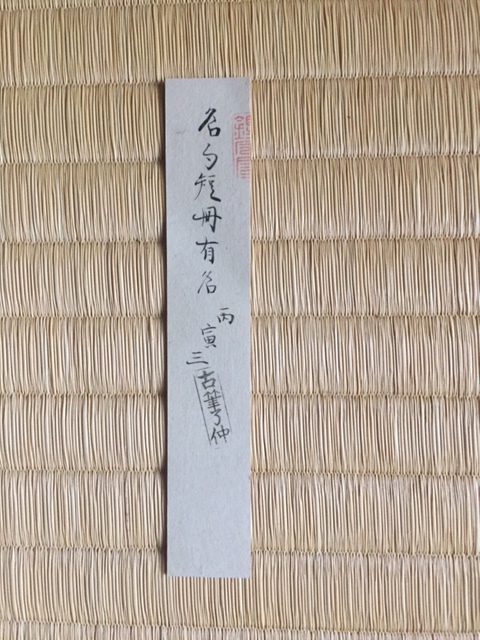 名句短冊有名
丙寅三
古筆了仲